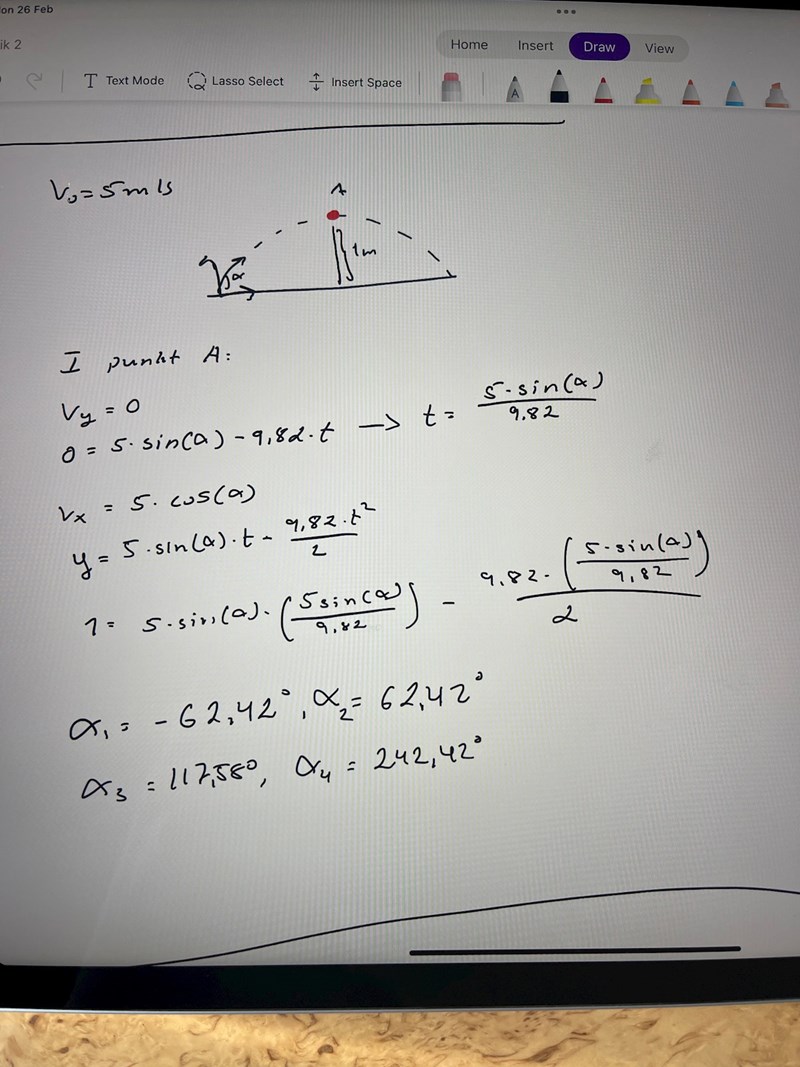 on 26 Feb
ik 2
Home Insert Draw View
Text Mode Lasso Select Insert Space
A
V₀ = 5 m/s
A
1m
α
I punkt A:
Vy = 0
0 = 5·sin(α) - 9,82·t → t = 5·sin(α)/9.82
Vx = 5·cos(α)
y = 5·sin(α)·t - 9,82·t²/2
1 = 5·sin(α)·(5sin(α)/9,82) - 9,82·(5·sin(α)/9,82)/2
α₁ = -62,42°, α₂ = 62,42°
α₃ = 117,58°, α₄ = 242,42°